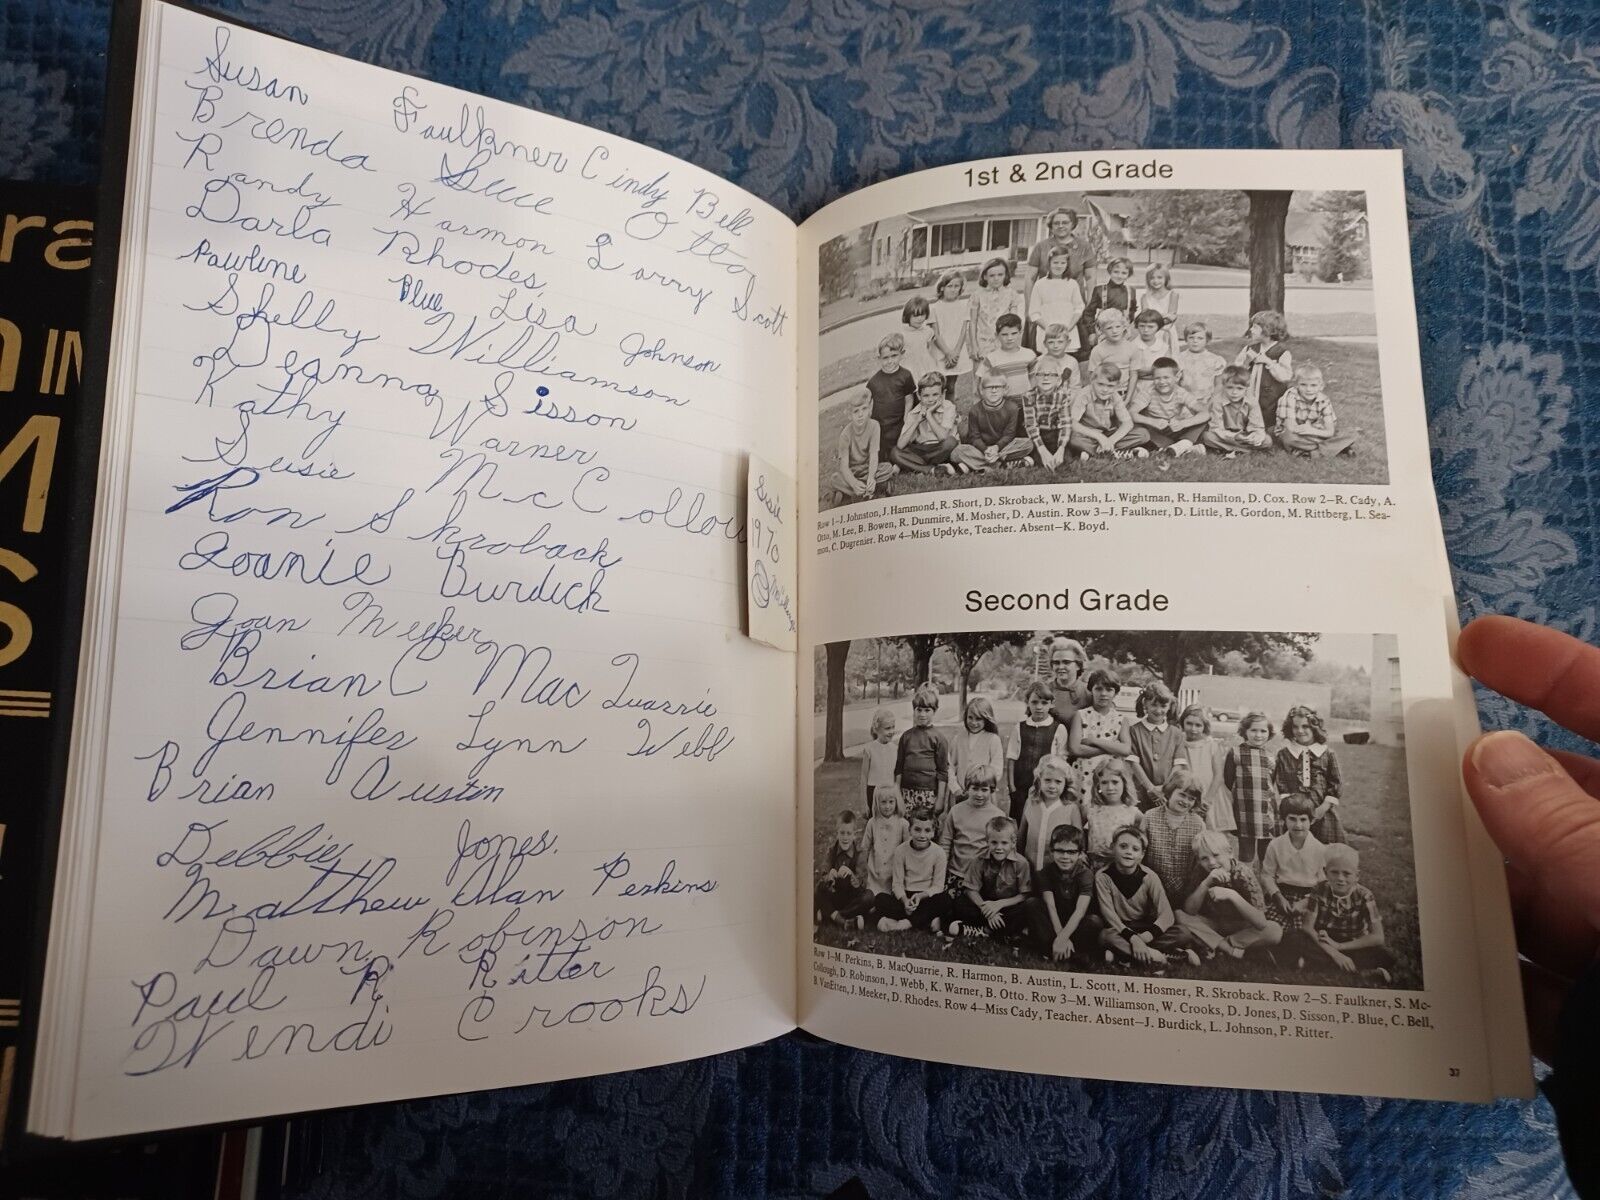 Susan Faulkner Cindy Bell
Brenda Sue Otto
Randy Harmon Larry Scott
Darla Rhodes
Pauline Blue Lisa Johnson
Shelly Williamson
Deanna Sisson
Kathy Warner
Susie McCollou
Ron Skroback
Joanie Burdick
Joan Meeker
Brian C MacQuarrie
Jennifer Lynn Webb
Brian Austin
Debbie Jones.
Matthew Alan Perkins
Dawn Robinson
Paul R. Ritter
Wendi Crooks
Susie
1970
1st & 2nd Grade
Row 1—J. Johnston, J. Hammond, R. Short, D. Skroback, W. Marsh, L. Wightman, R. Hamilton, D. Cox. Row 2—R. Cady, A.
Otto, M. Lee, B. Bowen, R. Dunmire, M. Mosher, D. Austin. Row 3—J. Faulkner, D. Little, R. Gordon, M. Rittberg, L. Sea-
mon, C. Dugrenier. Row 4—Miss Updyke, Teacher. Absent—K. Boyd.
Second Grade
Row 1—M. Perkins, B. MacQuarrie, R. Harmon, B. Austin, L. Scott, M. Hosmer, R. Skroback. Row 2—S. Faulkner, S. Mc-
Collough, D. Robinson, J. Webb, K. Warner, B. Otto. Row 3—M. Williamson, W. Crooks, D. Jones, D. Sisson, P. Blue, C. Bell,
B. VanEtten, J. Meeker, D. Rhodes. Row 4—Miss Cady, Teacher. Absent—J. Burdick, L. Johnson, P. Ritter.
37
ra
IN
M
S